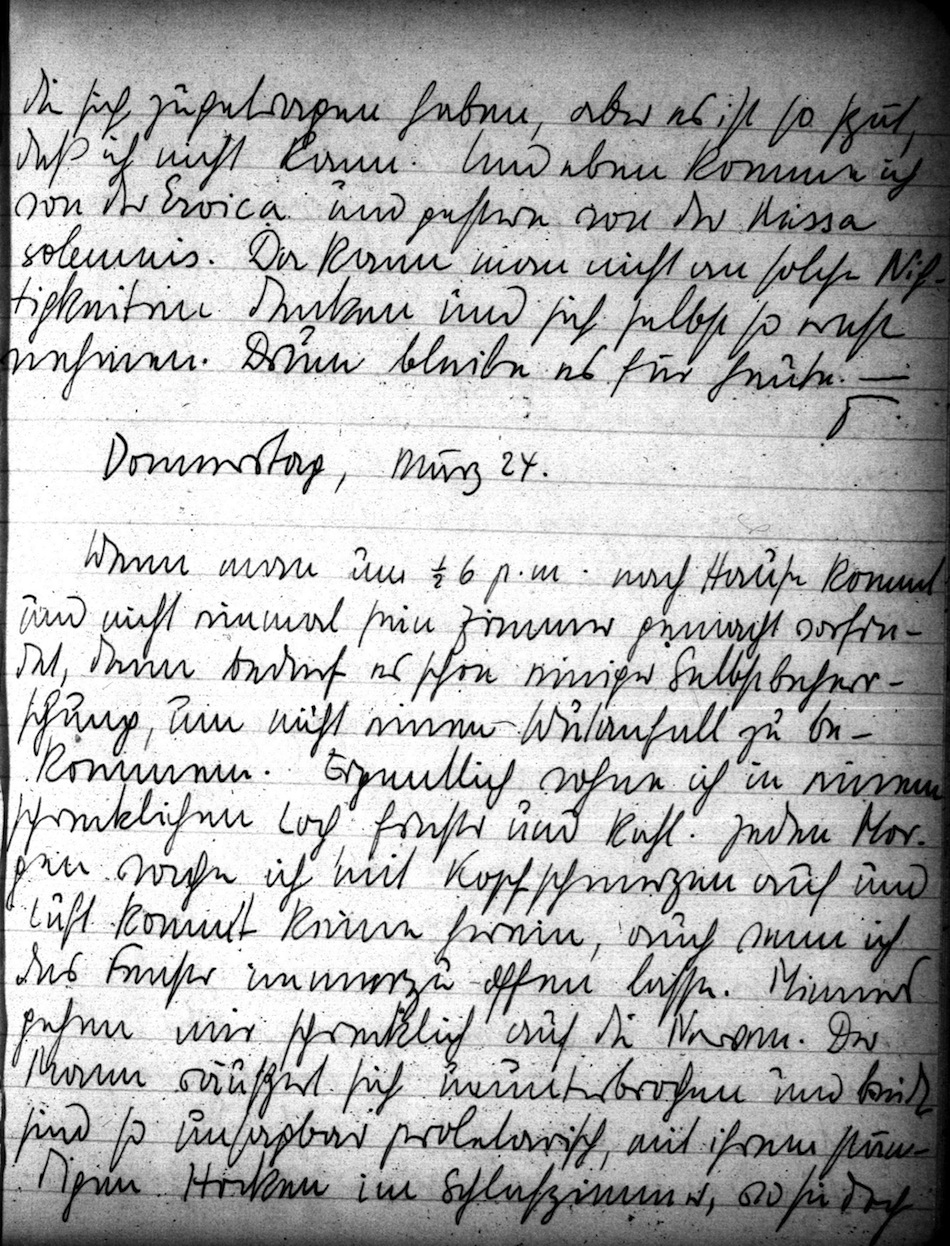 die sich zugetragen haben, aber es ist so gut,
daß ich nicht kann. Und eben komme ich
von der Eroica und gestern von der Missa
solemnis. Da kann man nicht an solche Nich-
tigkeiten denken und sich selbst so ernst
nehmen. Drum bleibe es für heute. —
Donnerstag, März 24.
Wenn man um ½ 6 p.m. nach Hause kommt
und nicht einmal sein Zimmer gemacht vorfin-
det, dann bedarf es schon einiger Selbstbeherr-
schung, um nicht einen Wutanfall zu be-
kommen. Eigentlich wohne ich in einem
schrecklichen Loch, finster und kahl. Jeden Mor-
gen wache ich mit Kopfschmerzen auf und
Luft kommt keine herein, auch wenn ich
das Fenster immerzu offen lasse. Minners
gehen mir schrecklich auf die Nerven. Der
Mann räuspert sich ununterbrochen und beide
sind so unsagbar proletarisch, mit ihrem stän-
digen Hocken im Schlafzimmer, wo sie doch